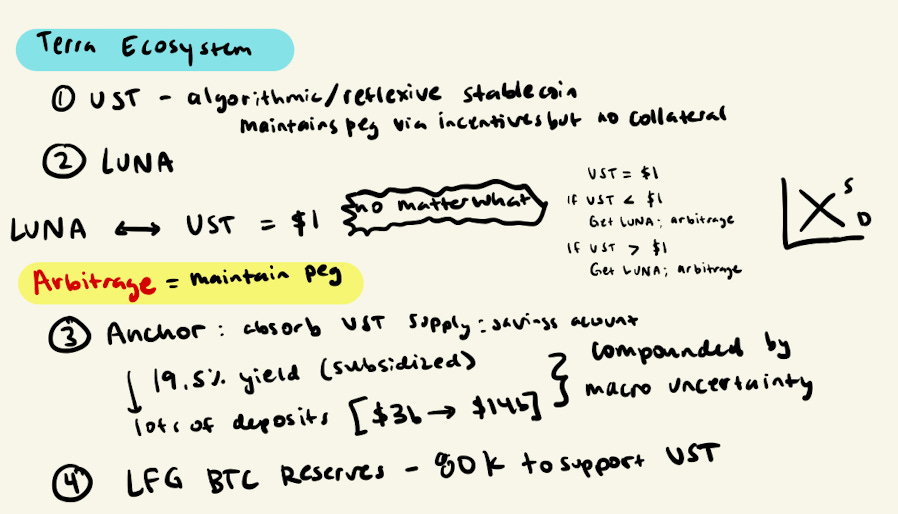 Terra Ecosystem
① UST - algorithmic/reflexive stablecoin
maintains peg via incentives but no collateral
② LUNA
LUNA ↔ UST = $1 no matter what
UST = $1
if UST < $1
Get LUNA; arbitrage
if UST > $1
Get LUNA; arbitrage
S
D
Arbitrage = maintain peg
③ Anchor: absorb UST supply: savings account
19.5% yield (subsidized)
lots of deposits [$3b → $14b]
compounded by
macro uncertainty
④ LFG BTC Reserves - 80k to support UST